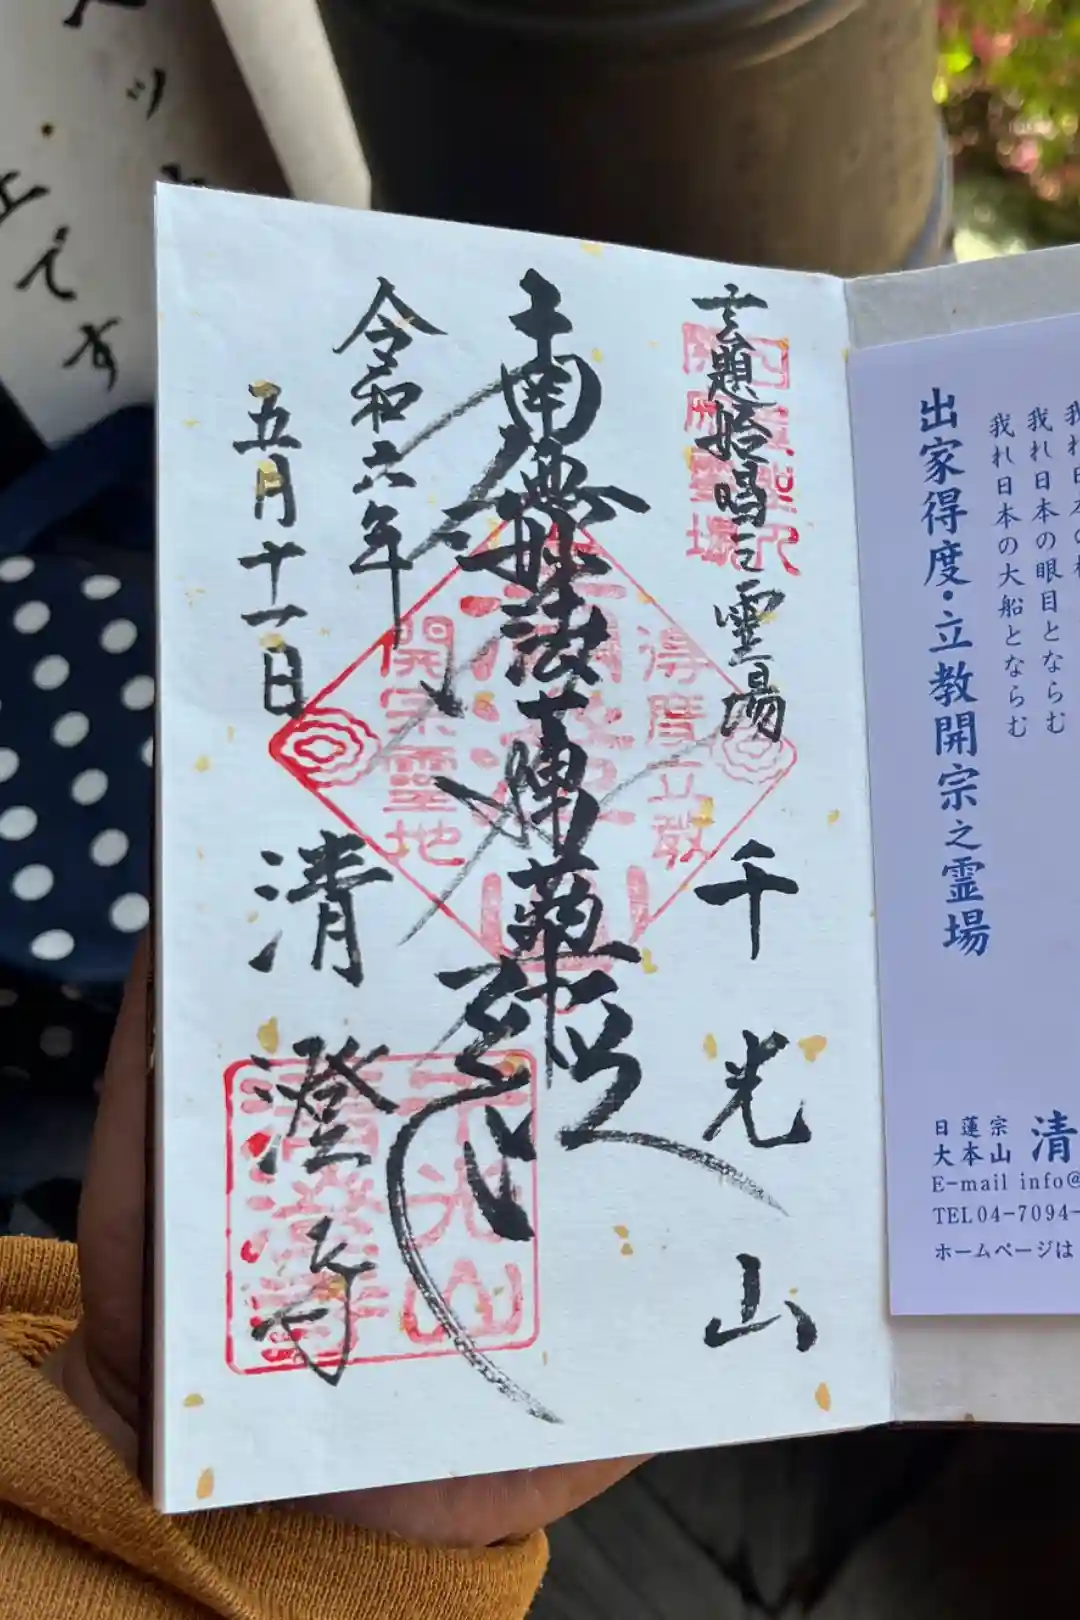 我れ日本の
我れ日本の眼目とならむ
我れ日本の大船とならむ
出家得度・立教開宗之霊場
日蓮宗
大本山
清
E-mail info@
TEL04-7094-
ホームページは
玄題始唱之霊場
千光山
南無妙法蓮華経
令和六年
五月十一日
清澄寺
得度立教
開宗霊地
千光山
清澄寺
です